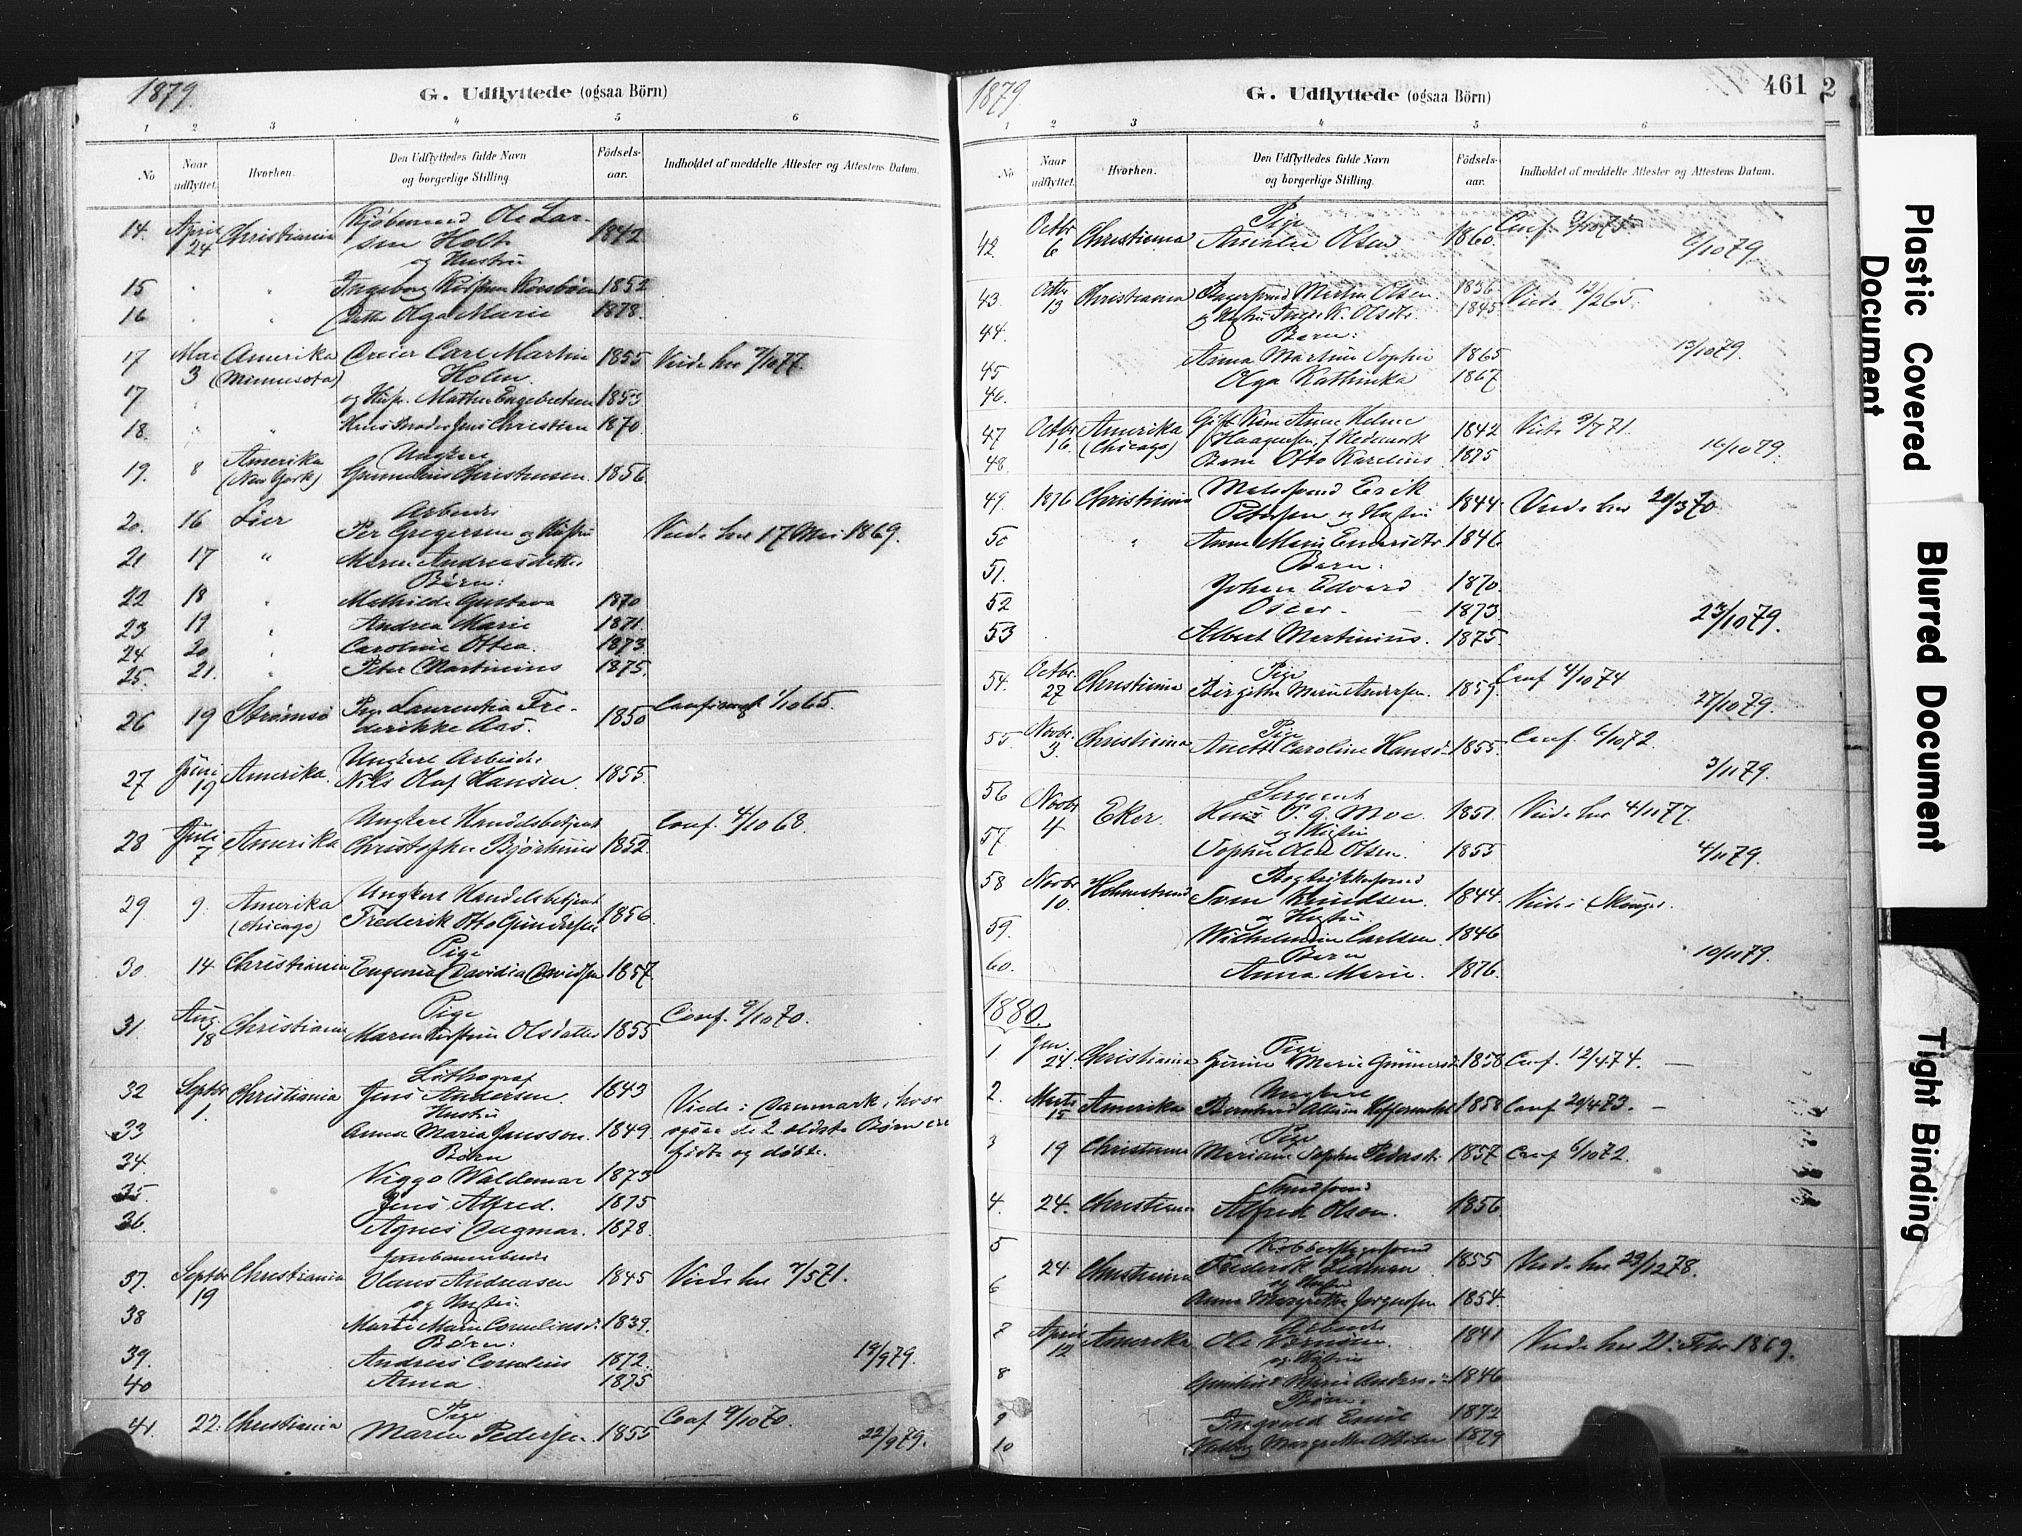 1879
G. Udflyttede (ogsaa Börn)
1 2 3 4 5 6
No
Naar udflyttet.
Hvorhen.
Den Udflyttedes fulde Navn og borgerlige Stilling.
Födsels-aar.
Indholdet af meddelte Attester og Attestens Datum.
14. April 24 Christiania Ole Lar-
sen Holt 1842
og Hustru
15 " " Ingeborg 1852
16 " " Olga Marie 1878.
17 Mai 3 Amerika (Minnesota) Carl Martin 1855 Viede her 7/10 77.
Holm.
17 " og Hustr. Mathea Engebretsen 1853
18. " " Jens Christian 1870.
19. 8 Amerika (New York) Ungkarl
Christensen. 1856.
20. 16 Lier Arbeider
Per Gregersen og Hustru Viede her 17 Mai 1869.
21 17 " Maren Andreasdatter
Börn:
22 18 " Mathilde Gustava 1870
23 19 " Andrea Marie 1871.
24 20 " Caroline Ottea. 1873.
25. 21. " Peter Martinius 1875.
26 19 Strömsö Pige Laurentia Fre-
derikke Aas. 1850 Confirmert 1/10 65.
27 Juni 19 Amerika. Ungkarl Arbeider
Nils Olaf Hansen. 1855.
28 Juli 7 Amerika Ungkarl Handelsbetjent Conf. 4/10 68.
Christopher 1852.
29 9. Amerika (Chicago) Ungkarl Handelsbetjent
Frederik Otto Gundersen 1856.
30 14 Christiania Pige
Eugenia Davidia Davidsen 1857
31. Aug. 18 Christiania Pige Conf. 9/10 70.
Maren Kirstine Olsdatter 1855
32 Septbr 1. Christiania Lithograf
Jens Andersen. 1843 Viede i Danmark, hvor
Hustru
33 Anna Maria Jansson. 1849. ogsaa de 2 ældste Börn ere
Börn födte og döbte.
34. Viggo Waldemar 1873
35. Jens Alfred. 1875
36. Agnes Dagmar. 1878.
37. Septbr 19 Christiania Jernbanearbeider
Olaus Andreasen 1845 Viede her 7/5 71.
og Hustru.
38 Marte Marie Corneliusd. 1839.
Börn:
39. Andreas Cornelius 1872. 19/9 79.
40 Anna. 1875
41. 22. Christiania Pige Conf 9/10 70.
Maren Pedersen. 1855 22/9 79.
1879
G. Udflyttede (ogsaa Börn)
461 2
1 2 3 4 5 6
No
Naar udflyttet.
Hvorhen.
Den Udflyttedes fulde Navn og borgerlige Stilling.
Födsels-aar.
Indholdet af meddelte Attester og Attestens Datum.
42. Octbr 6 Christiania Pige
Amalie Olsen 1860. Conf. 3/10 75. 6/10 79.
43. Octbr 13 Christiania Martin Olsen. 1836 Viede 13/2 65.
44. og Hustru Inger K. Olsdtr. 1845
Börn:
45 Anna Martine Sophie 1865 13/10 79.
46. Olga Kathinka 1867
47 Octbr 16. Amerika (Chicago) Gift Kone Anne Helene
Haagensen, f. Hedemark 1842 Viet 9/7 71.
48. Barn Otto Karelius 1875 16/10 79.
49. 1876 Christiania Erik
Petersen og Hustru 1844. Viede her 20/3 70
50 " Anne Marie 1846.
51. Börn:
Johan Edvard 1870.
52 Oscar. 1873.
53 Albert Martinius. 1875. 23/10 79.
54. Octbr. 27 Christiania Pige Conf 4/10 74
Birgitte Marie Andersen. 1859. 27/10 79.
55. Novbr. 3 Christiania Pige Conf. 6/10 72.
Anette Caroline Hansd. 1855. 3/11 79.
56 Novbr 4 Eker. Sergeant
Moe. 1851 Viede her 4/11 77.
57. og Hustru
Sophie Olava Olsen. 1855 4/11 79.
58 Novbr 10. Holmestrand
Sven Knudsen. 1844. Viede i Skauger
59. og Hustru.
Wilhelmine Carlsen. 1846
60. Barn
Anna Marie. 1876. 10/11 79.
1880.
1 Jan. 24. Christiania Pige
Marie 1858 Conf. 12/4 74.
2. Marts 15 Amerika Ungkarl
Bernhard 1858 Conf 20/4 73.
3 19 Christiania Pige
Sophie Pedersd. 1857 Conf 6/10 72.
4. 24. Christiania
Alfred Olsen. 1856.
5 24 Christiania
Frederik 1855 Viede her 29/12 78.
6 og Hustru
Anne Margrethe Jörgensen 1854.
7 April 12 Amerika Arbeider
Ole 1841 Viede her 21. Febr 1869.
og Hustru
8 Marie 1846
Börn.
9 Ingvald Emil 1872
10 Margrethe 1879
Plastic Covered Document
Blurred Document
Tight Binding